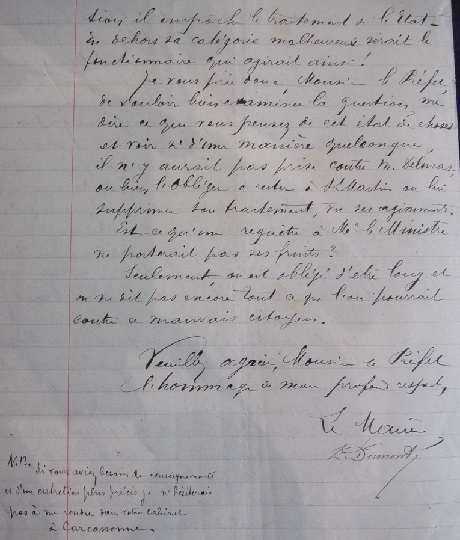 sion, il empoche le traitement de l'Etat
en dehors sa catégorie malheureux serait le
fonctionnaire qui agirait ainsi !
Je vous prie donc Monsieur le Préfet
de vouloir bien examiner la question, me
dire ce que vous pensez de cet état de choses
et voir si d'une manière quelconque,
il n'y aurait pas prise contre M. Delmas,
ou bien l'obliger a rester à St Martin ou lui
supprimer son traitement, vu ses agissements.
Est ce qu'une requête à Mr le Ministre
ne porterait pas ses fruits ?
Seulement, on est obligé d'être long et
on ne dit pas encore tout ce que l'on pourrait
contre ce mauvais citoyen.
Veuillez agréer, Monsieur le Préfet
l'hommage de mon profond respect,
Le Maire
Dumont
N.B. Si vous aviez besoin de renseignements
et d'un entretien plus précis je n'hésiterais
pas à me rendre dans votre cabinet
à Carcassonne.